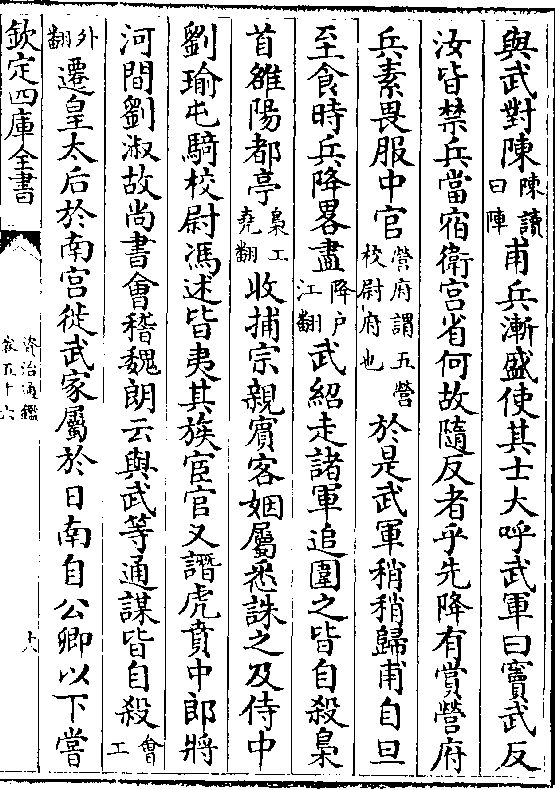 與武對陳陳讀曰陣甫兵漸盛使其士大呼武軍曰竇武反
汝皆禁兵當宿衛宮省何故隨反者乎先降有賞營府
兵素畏服中官營府謂五營校尉府也於是武軍稍稍歸甫自旦
至食時兵降畧盡降户江翻武紹走諸軍追圍之皆自殺梟
首雒陽都亭梟工堯翻收捕宗親賓客姻屬悉誅之及侍中
劉瑜屯騎校尉馮述皆夷其族宦官又譖虎賁中郎將
河間劉淑故尚書會稽魏朗云與武等通謀皆自殺會工
外翻遷皇太后於南宮徙武家屬於日南自公卿以下嘗
欽定四庫全書
資治通鑑
卷五十六
十八